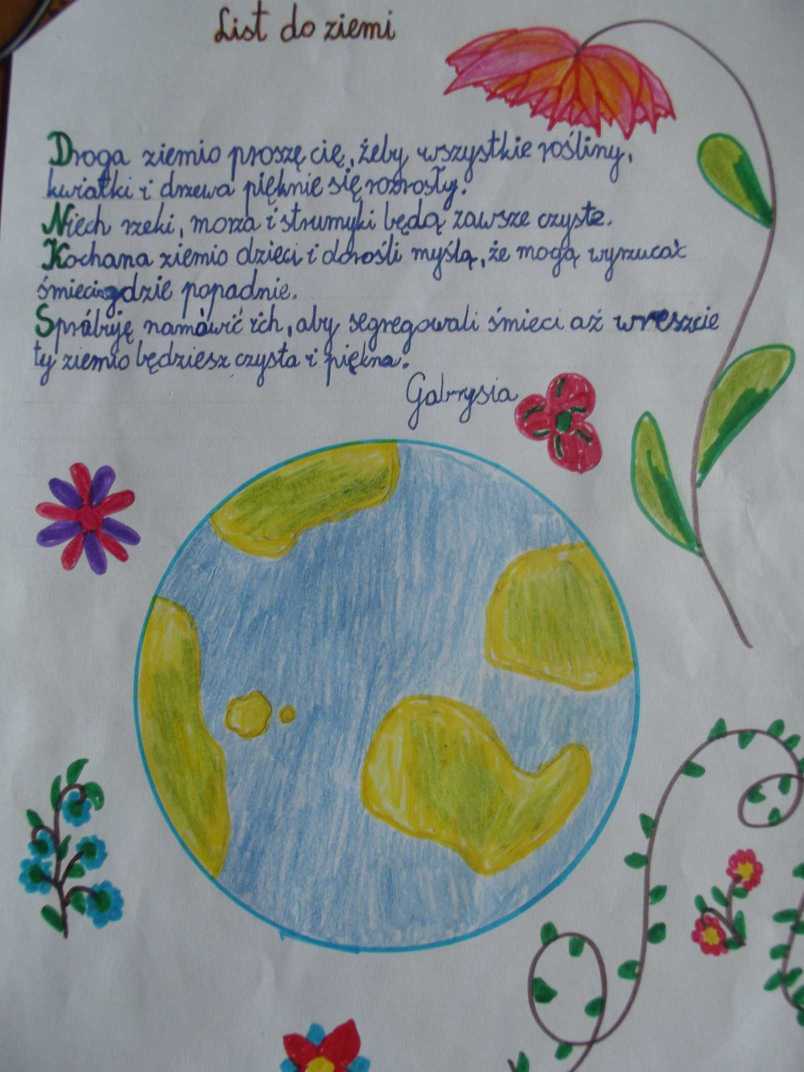 List do ziemi
Droga ziemio proszę cię, żeby wszystkie rośliny,
kwiatki i drzewa pięknie się rozrosły.
Niech rzeki, morza i strumyki będą zawsze czyste.
Kochana ziemio dzieci i dorośli myślą, że mogą wyrzucać
śmieci gdzie popadnie.
Spróbuję namówić ich, aby segregowali śmieci aż wreszcie
ty ziemio będziesz czysta i piękna.
Gabrysia